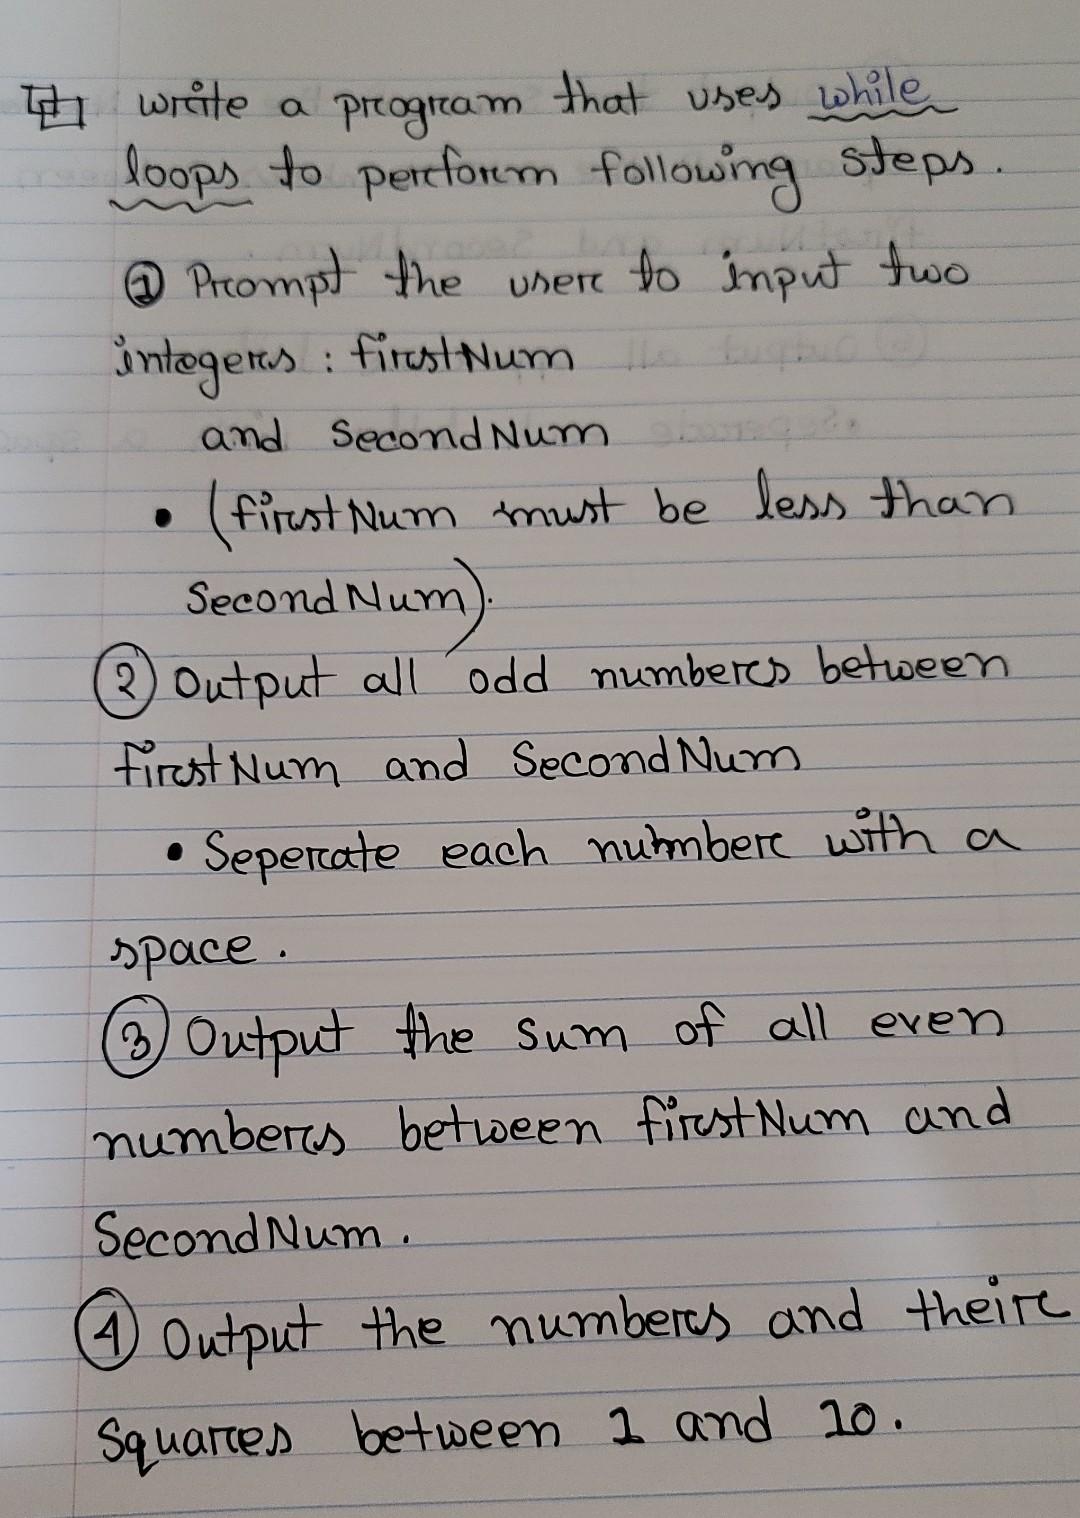 write a program that uses while
loops to perform following steps.
① Prompt the user to input two
integers : firstNum
and SecondNum
• (firstNum must be less than
SecondNum).
② Output all odd numbers between
firstNum and SecondNum
• Seperate each number with a
space.
③ Output the sum of all even
numbers between firstNum and
SecondNum.
④ Output the numbers and their
Squares between 1 and 10.